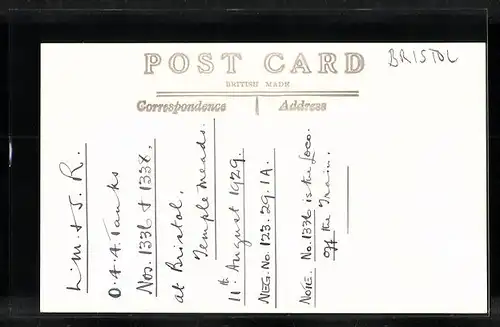 POST CARD
BRITISH MADE
Correspondence
Address
BRISTOL
L.M. & S. R.
0.4.4. Tanks
Nos. 1336 & 1338.
at Bristol.
Temple Meads.
11th August 1929.
NEG. No. 123. 29. 1A.
NOTE. No. 1336 is the Loco.
off the Train.